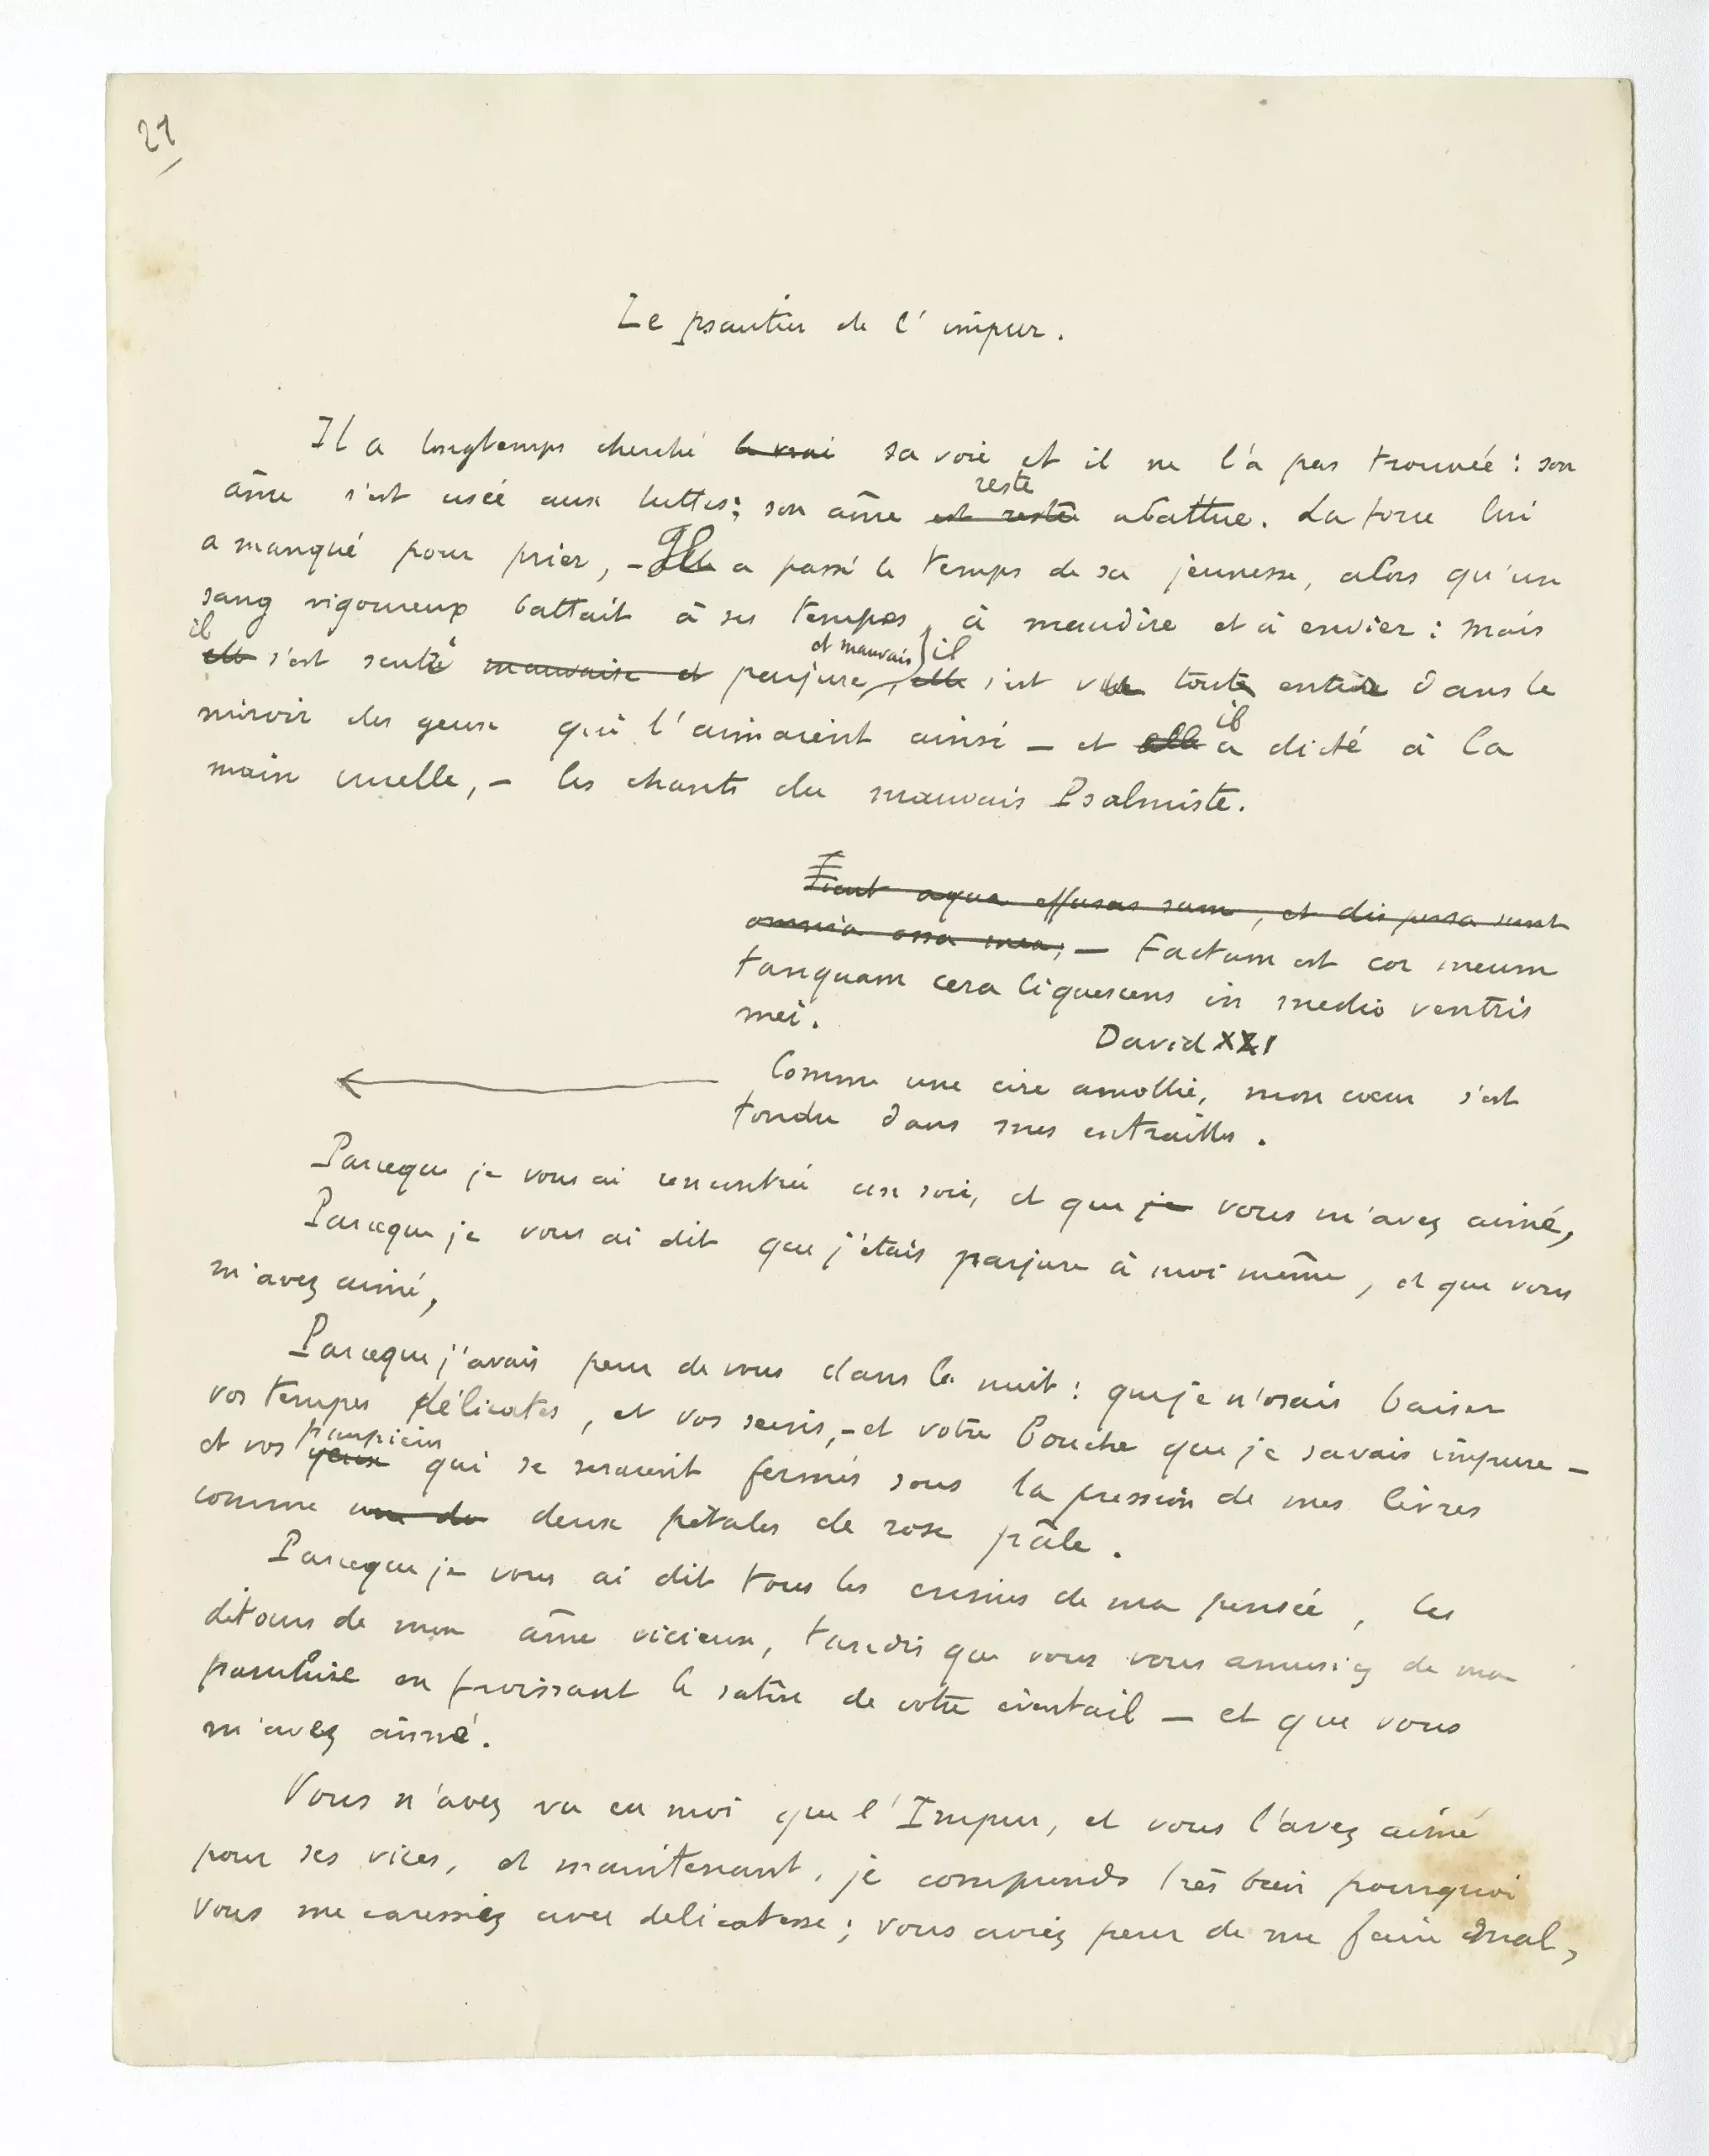 21
Le psautier de l'impur.
Il a longtemps cherché le vrai sa voie et il ne l'a pas trouvée : son
reste
âme s'est usée aux luttes; son âme est restée abattue. La force lui
a manqué pour prier, – Il a passé le temps de sa jeunesse, alors qu'un
sang vigoureux battait à ses tempes, à maudire et à envier : mais
il et mauvais il
elle s'est senti mauvaise et parjure, elle s'est vue toute entière dans le
il
miroir des yeux qui l'aimaient ainsi – et elle a dicté à la
main cruelle, – les chants du mauvais Psalmiste.
Sicut aqua effusus sum, et dispersa sunt
omnia ossa mea; – Factum est cor meum
tanquam cera liquescens in medio ventris
mei.
David XXI
Comme une cire amollie, mon cœur s'est
fondu dans mes entrailles.
Parceque je vous ai rencontrée un soir, et que je vous m'avez aimé,
Parceque je vous ai dit que j'étais parjure à moi même, et que vous
m'avez aimé,
Parceque j'avais peur de vous dans la nuit : que je n'osais baiser
vos tempes délicates, et vos seins, – et votre bouche que je savais impure –
paupières
et vos yeux qui se seraient fermés sous la pression de mes lèvres
comme une de deux pétales de rose pâle.
Parceque je vous ai dit tous les crimes de ma pensée, les
détours de mon âme vicieuse, tandis que vous vous amusiez de ma
franchise en froissant le satin de votre éventail – et que vous
m'avez aimé.
Vous n'avez vu en moi que l'Impur, et vous l'avez aimé
pour ses vices, et maintenant, je comprends très bien pourquoi
vous me caressiez avec delicatesse; vous aviez peur de me faire mal,